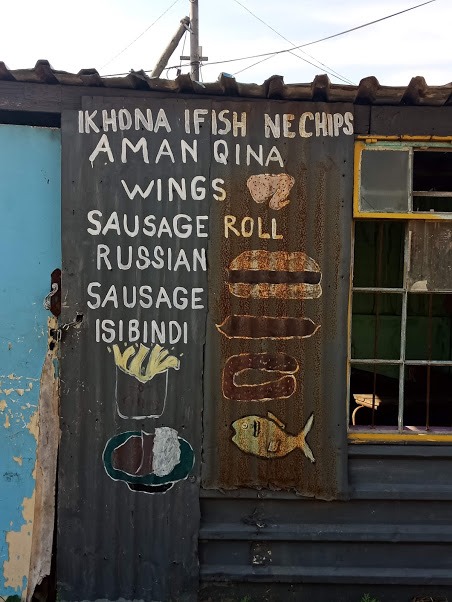 IKHONA IFISH NECHIPS
AMANQINA
WINGS
SAUSAGE ROLL
RUSSIAN
SAUSAGE
ISIBINDI